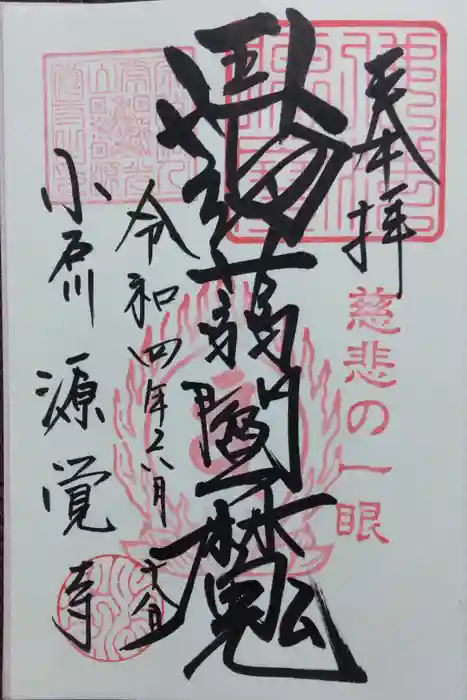 奉拝
慈悲の一眼
蒟蒻閻魔
令和四年六月十八日
小石川源覚寺